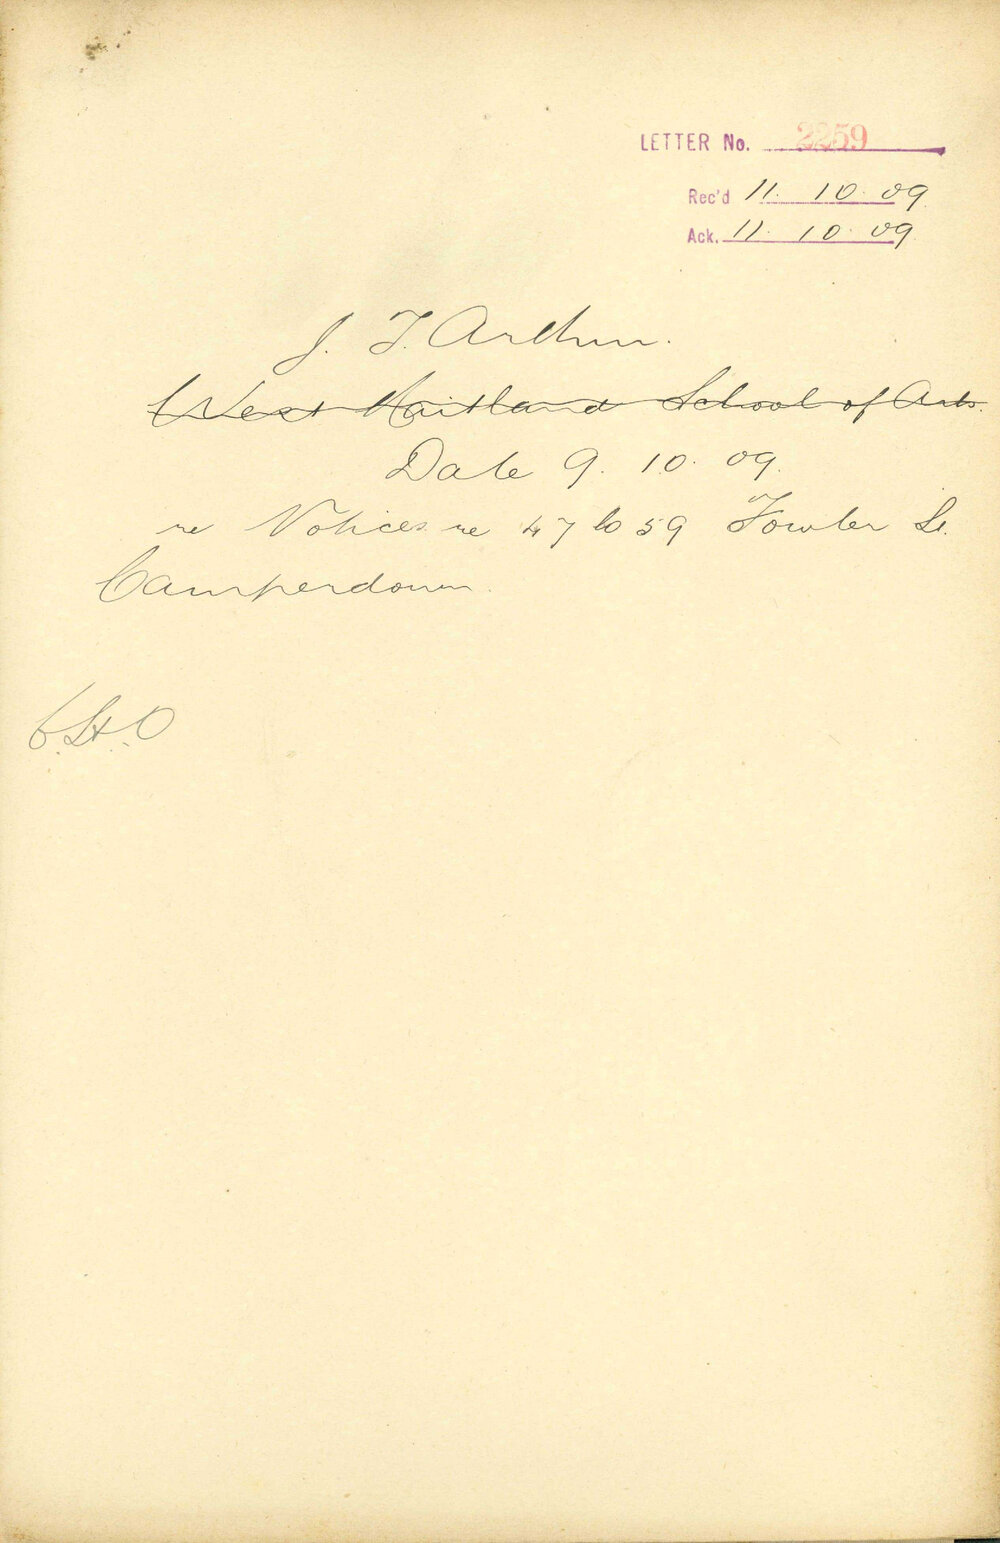 LETTER No. 2259
Rec'd 11. 10. 09.
Ack. 11. 10. 09
J. F. Arthur.
West Maitland School of Arts.
Date 9. 10. 09.
re Notices re 47 to 59 Fowler St.
Camperdown.